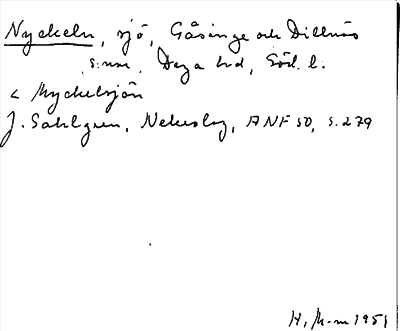 Nyckeln, sjö, Gåsinge och Dillnäs
s:nar, Daga hd, Söd. l.
< Myckelsjön
J. Sahlgren, Nekrolog, ANF 50, s. 279
H. M-m 1951